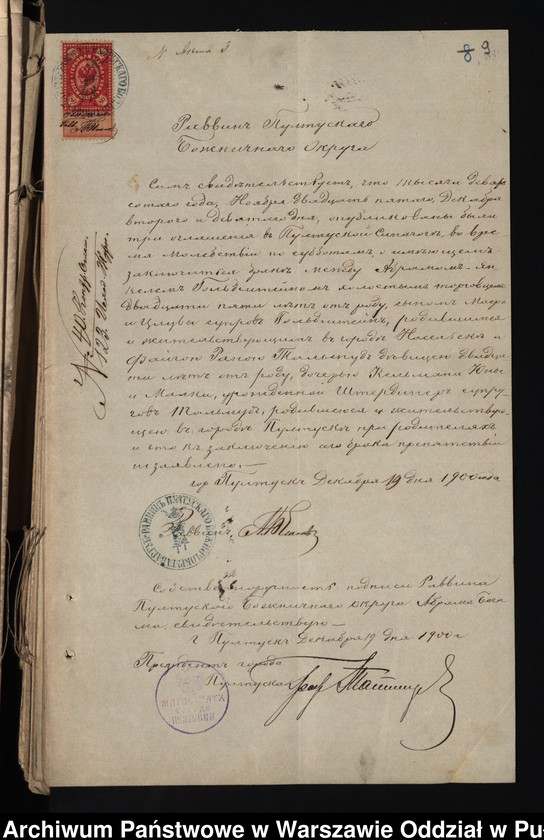 8 9
Раввинъ Пултускаго
Божничнаго Округа
Симъ свидѣтельствуетъ, что тысяча девять
сотаго года, Ноября двадцать пятаго, Декабря
втораго и девятаго дня, опубликованы были
три оглашенія въ Пултуской Синагогѣ, во вре
мя Молебствій по субботамъ, о имѣющемъ
заключиться бракѣ между Абрамомъ-Ян
келемъ Гольдштейномъ холостымъ торговцемъ
двадцати пяти лѣтъ отъ роду, сыномъ
и супруговъ Гольдштейнъ, родившимся
и жительствующимъ въ городѣ Насельскѣ и
Файгою Рахлою дѣвицею двадца
ти лѣтъ отъ роду, дочерью Кельмана
и Малки, урожденной супру
говъ родившеюся и жительствую
щею въ городѣ Пултускѣ при родителяхъ
и что къ заключенію сего брака препятствій
не заявлено.—
гор Пултускъ Декабря 19 дня 1900 года
Раввинъ
Собственноручность подписи Раввина
Пултускаго Божничнаго Округа Абрама
свидѣтельствую.—
г Пултускъ Декабря 19 дня 1900 г
Президентъ города
Пултуска
Archiwum Państwowe w Warszawie Oddział w Pu